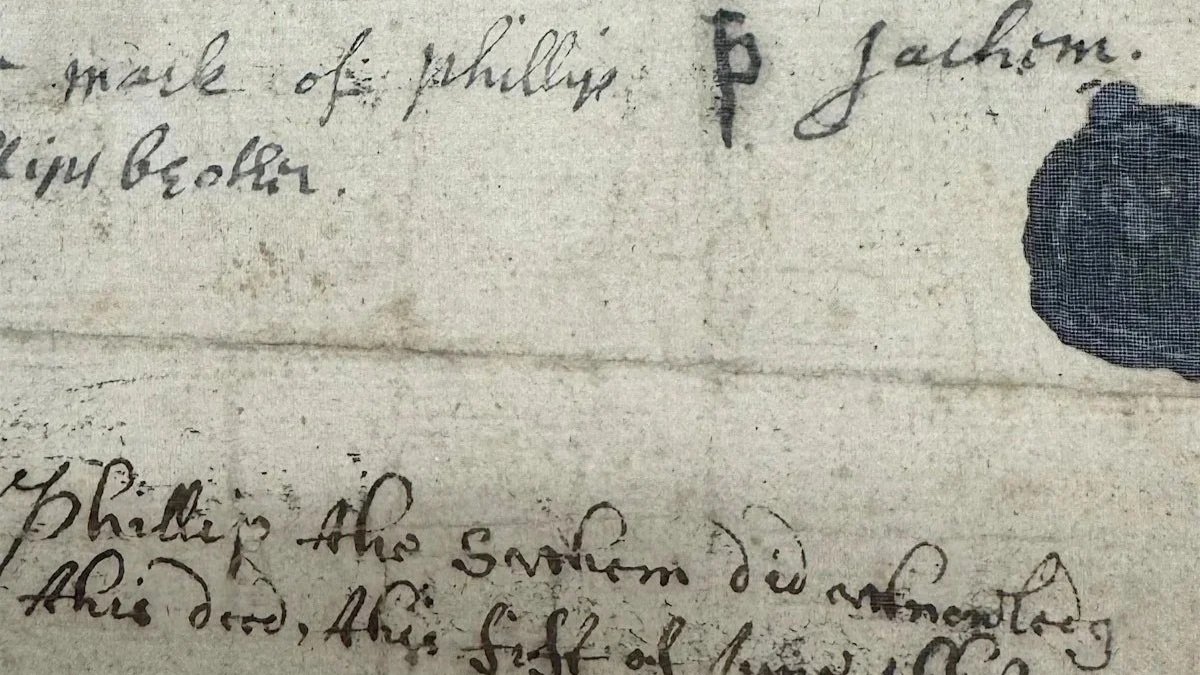 mark of phillip P Sachem.
llips brother.
Phillip the Sachem did acknowledg
this deed, this fift of June 166